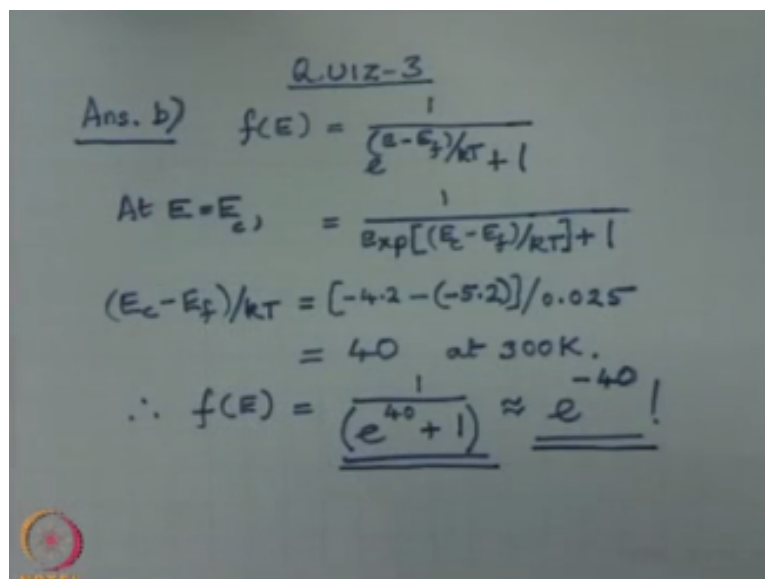 QUIZ-3
Ans. b) f(E) = 1 / (e^(E-E_f)/kT + 1)
At E=E_c, = 1 / (exp[(E_c-E_f)/kT]+1)
(E_c-E_f)/kT = [-4.2-(-5.2)]/0.025
= 40 at 300K.
∴ f(E) = 1 / (e^40 + 1) ≈ e^-40 !